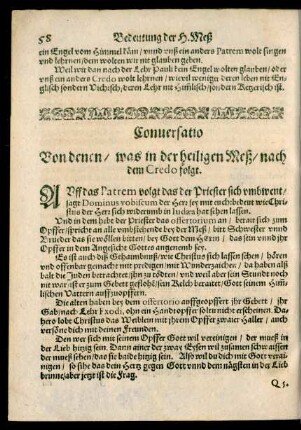 58 Bedeutung der H. Meß
ein Engel vom Himmel käm / vnnd vnß ein anders Patrem wolt singen
vnd lehrnen / dem wolten wir nit glauben geben.
Weil wir dan nach der Lehr Pauli kein Engel wolten glauben / der
vnß ein anders Credo wolt lehrnen / wievil weniger deren leben nit En-
glisch sondern Vichisch / deren Lehr nit Himlisch / sondern Bergerisch ist.
Conuersatio
Von denen / was in der heiligen Meß / nach
dem Credo folgt.
AVff das Patrem volgt das der Priester sich vmbwent /
sagt Dominus vobiscum der Herr sey mit euch bedeut wie Chri-
stus der Herr sich widerumb in Iudæa hat sehen lassen.
Vnd in dem hebt der Priester das offertorium an / berait sich zum
Opffer / spricht an alle vmbstehende bey der Meß / bitt Schwester vnnd
Brueder das sie wöllen bitten / bey Gott dem Herrn / das sein vnnd jhr
Opffer in dem Angesicht Gottes angenemb sey.
Es ist auch diß Gehaimbnuß / wie Christus sich lassen sehen / hören
vnd offenbar gemacht mit predigen mit Wunderzaichen / da haben als
balt die Juden betrachtet jhn zu tödten / vnd weil aber sein Stundt noch
nit war ist er zum Gebett geflohen / sein Kelch beraitet / Gott seinem Him-
lischen Vattern auffzuopffern.
Die alten haben bey dem offertorio auffgeopffert jhr Gebett / jhr
Gab / nach Lehr Exodi, ohn ein Handtopffer solt nicht erscheinen. Da-
hero lobt Christus das Weiblen mit jhrem Opffer zwaier Haller / auch
versöne dich mit deinen Freunden.
Den wer sich mit seinem Opffer Gott wil vereinigen / der mueß in
der Lieb hitzig sein. Dann ainer der zway Eysen wil zusamen schwaissen
der mueß sehen / das sie baide hitzig sein. Also wil du dich mit Gott verai-
nigen / so sihe das dein Hertz gegen Gott vnnd dem nägsten in der Lieb
brinne / aber jetzt ist die Frag.